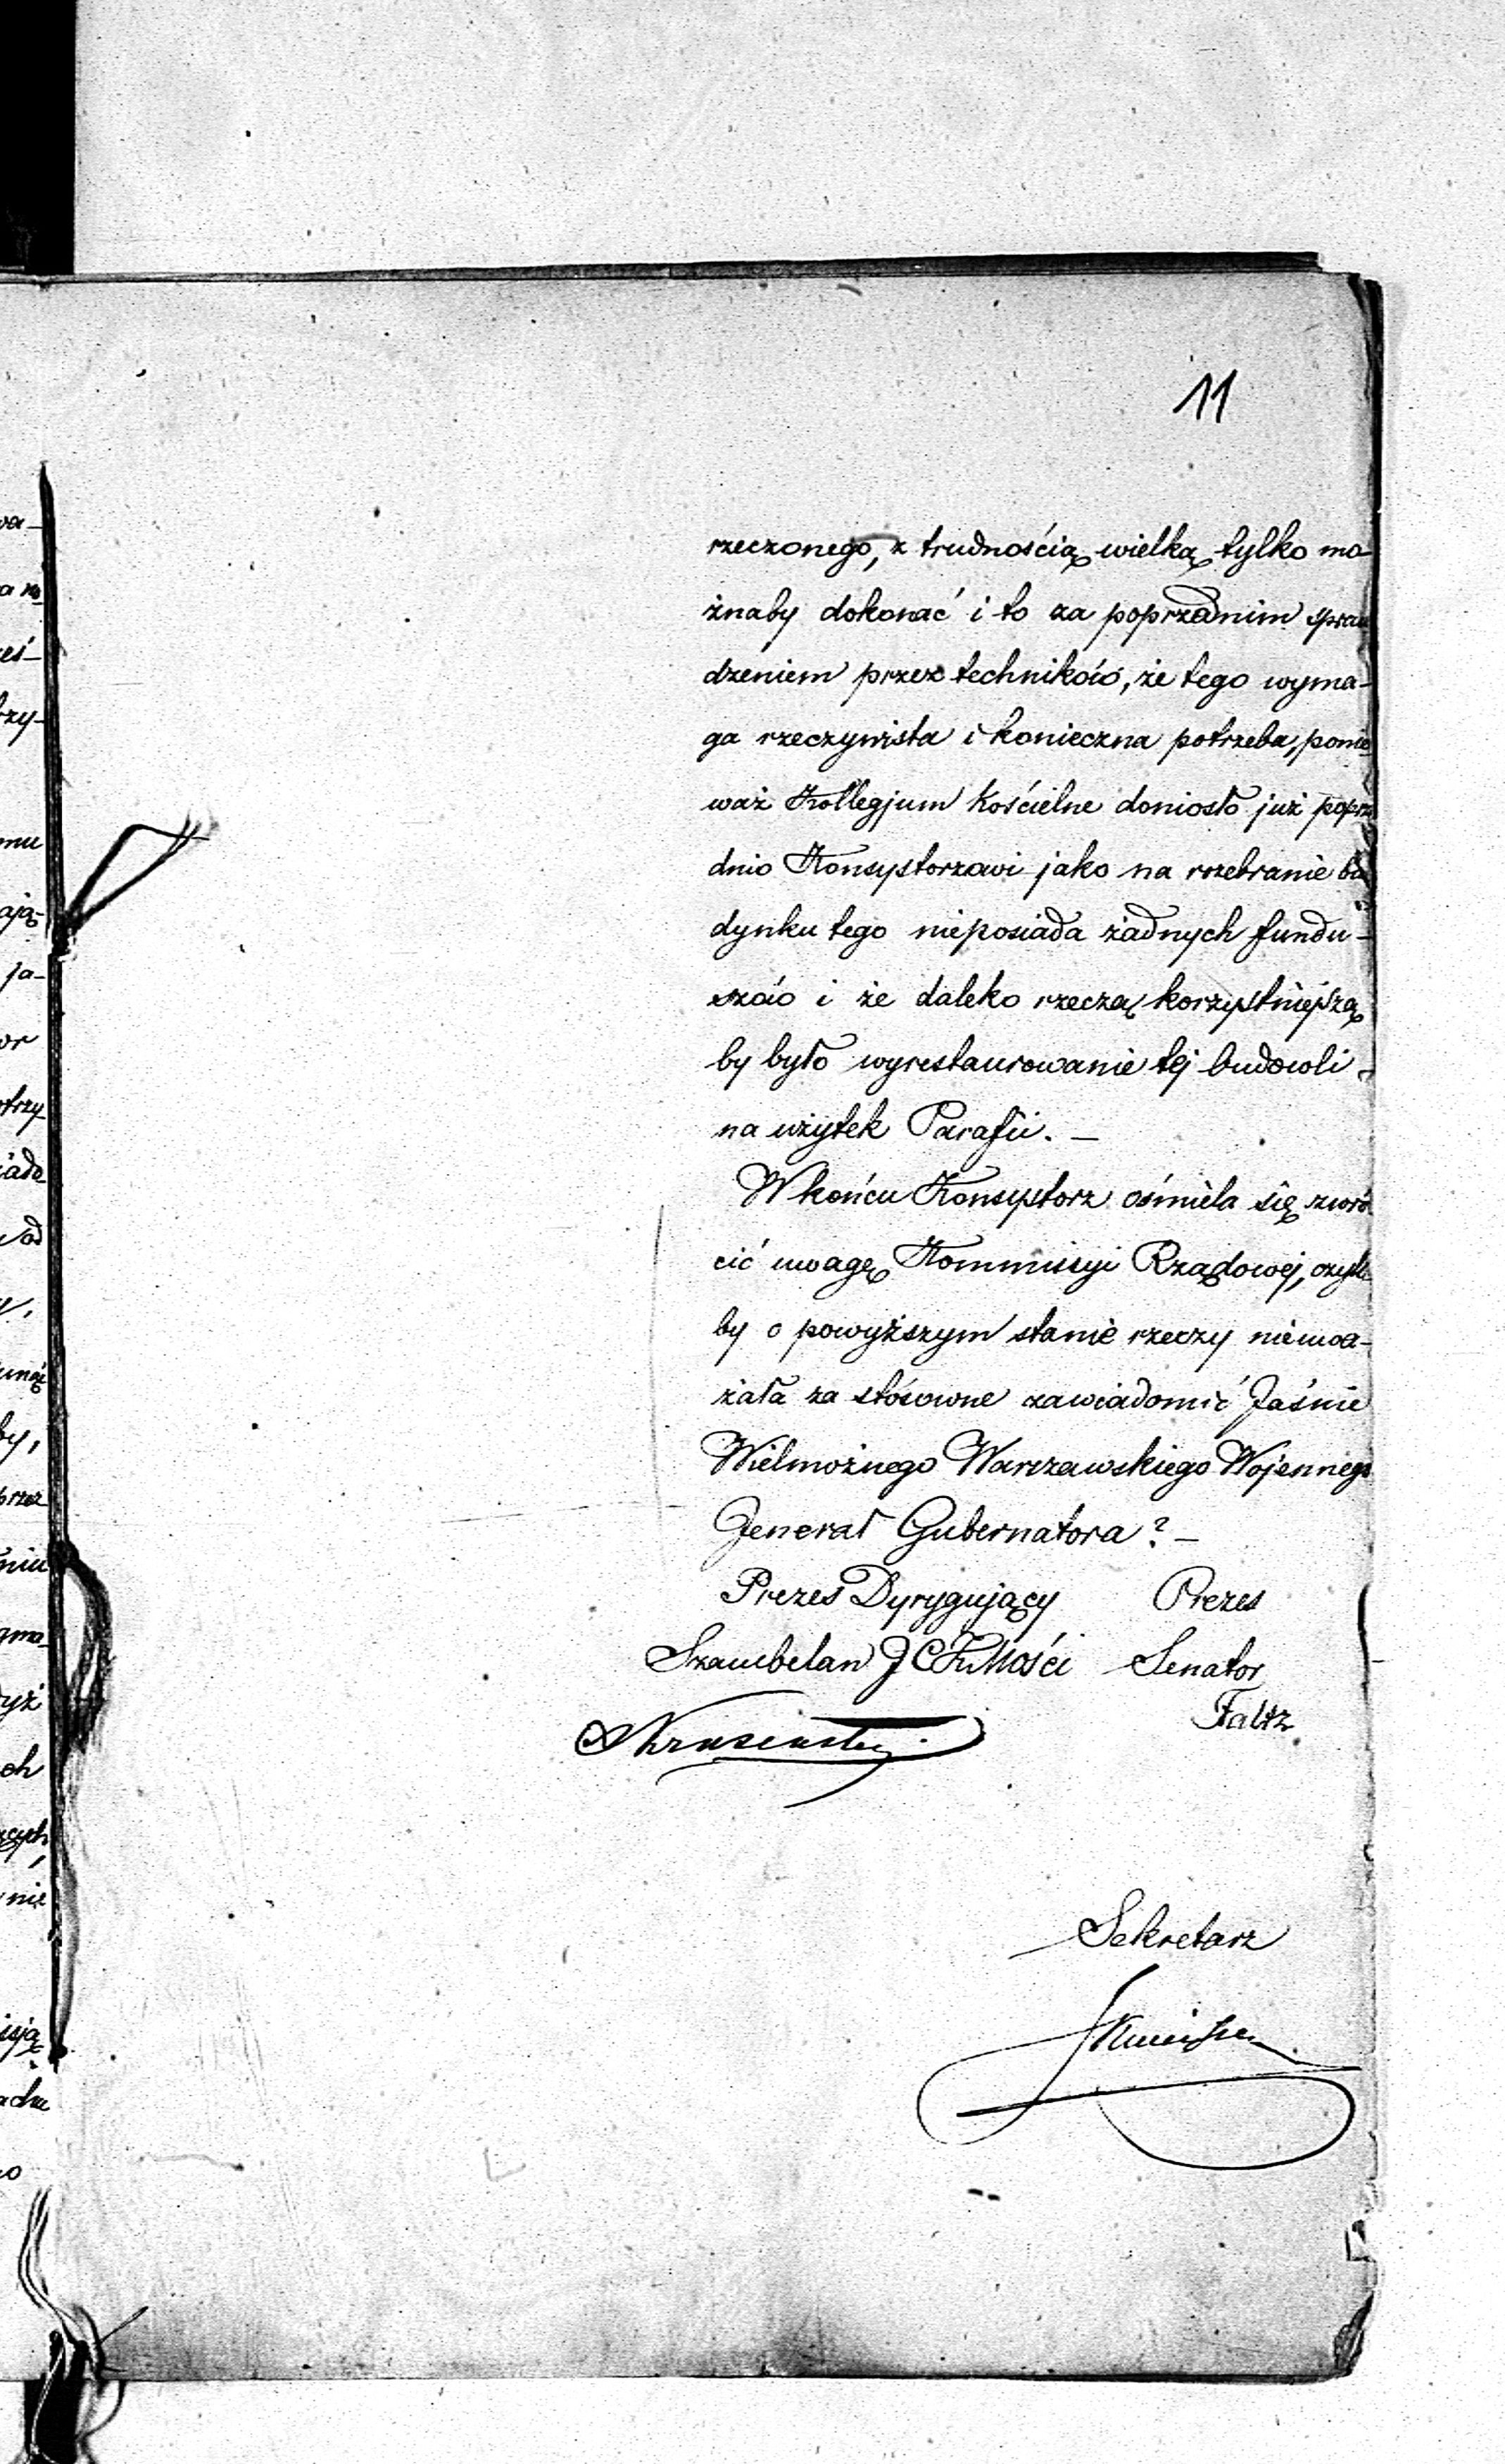 11
rzeczonego, z trudnością wielką tylko mo-
żnaby dokonać i to za poprzednim spraw
dzeniem przez techników, że tego wyma-
ga rzeczywista i konieczna potrzeba, ponie
waż Kollegjum Kościelne doniosło już poprze
dnio Konsystorzowi jako na rozebranie bu
dynku tego nieposiada żadnych fundu-
szów i że daleko rzeczą korzystniejszą
by było wyrestaurowanie tej budowli
na użytek Parafii. —
W końcu Konsystorz ośmiela się zwró
cić uwagę Kommissyi Rządowej, czyli
by o powyższym stanie rzeczy nieuwa-
żała za stósowne zawiadomić Jaśnie
Wielmożnego Warszawskiego Wojennego
Jenerał Gubernatora? —
Prezes Dyrygujący Prezes
Szambelan JCKMości Senator
Faltz
Sekretarz